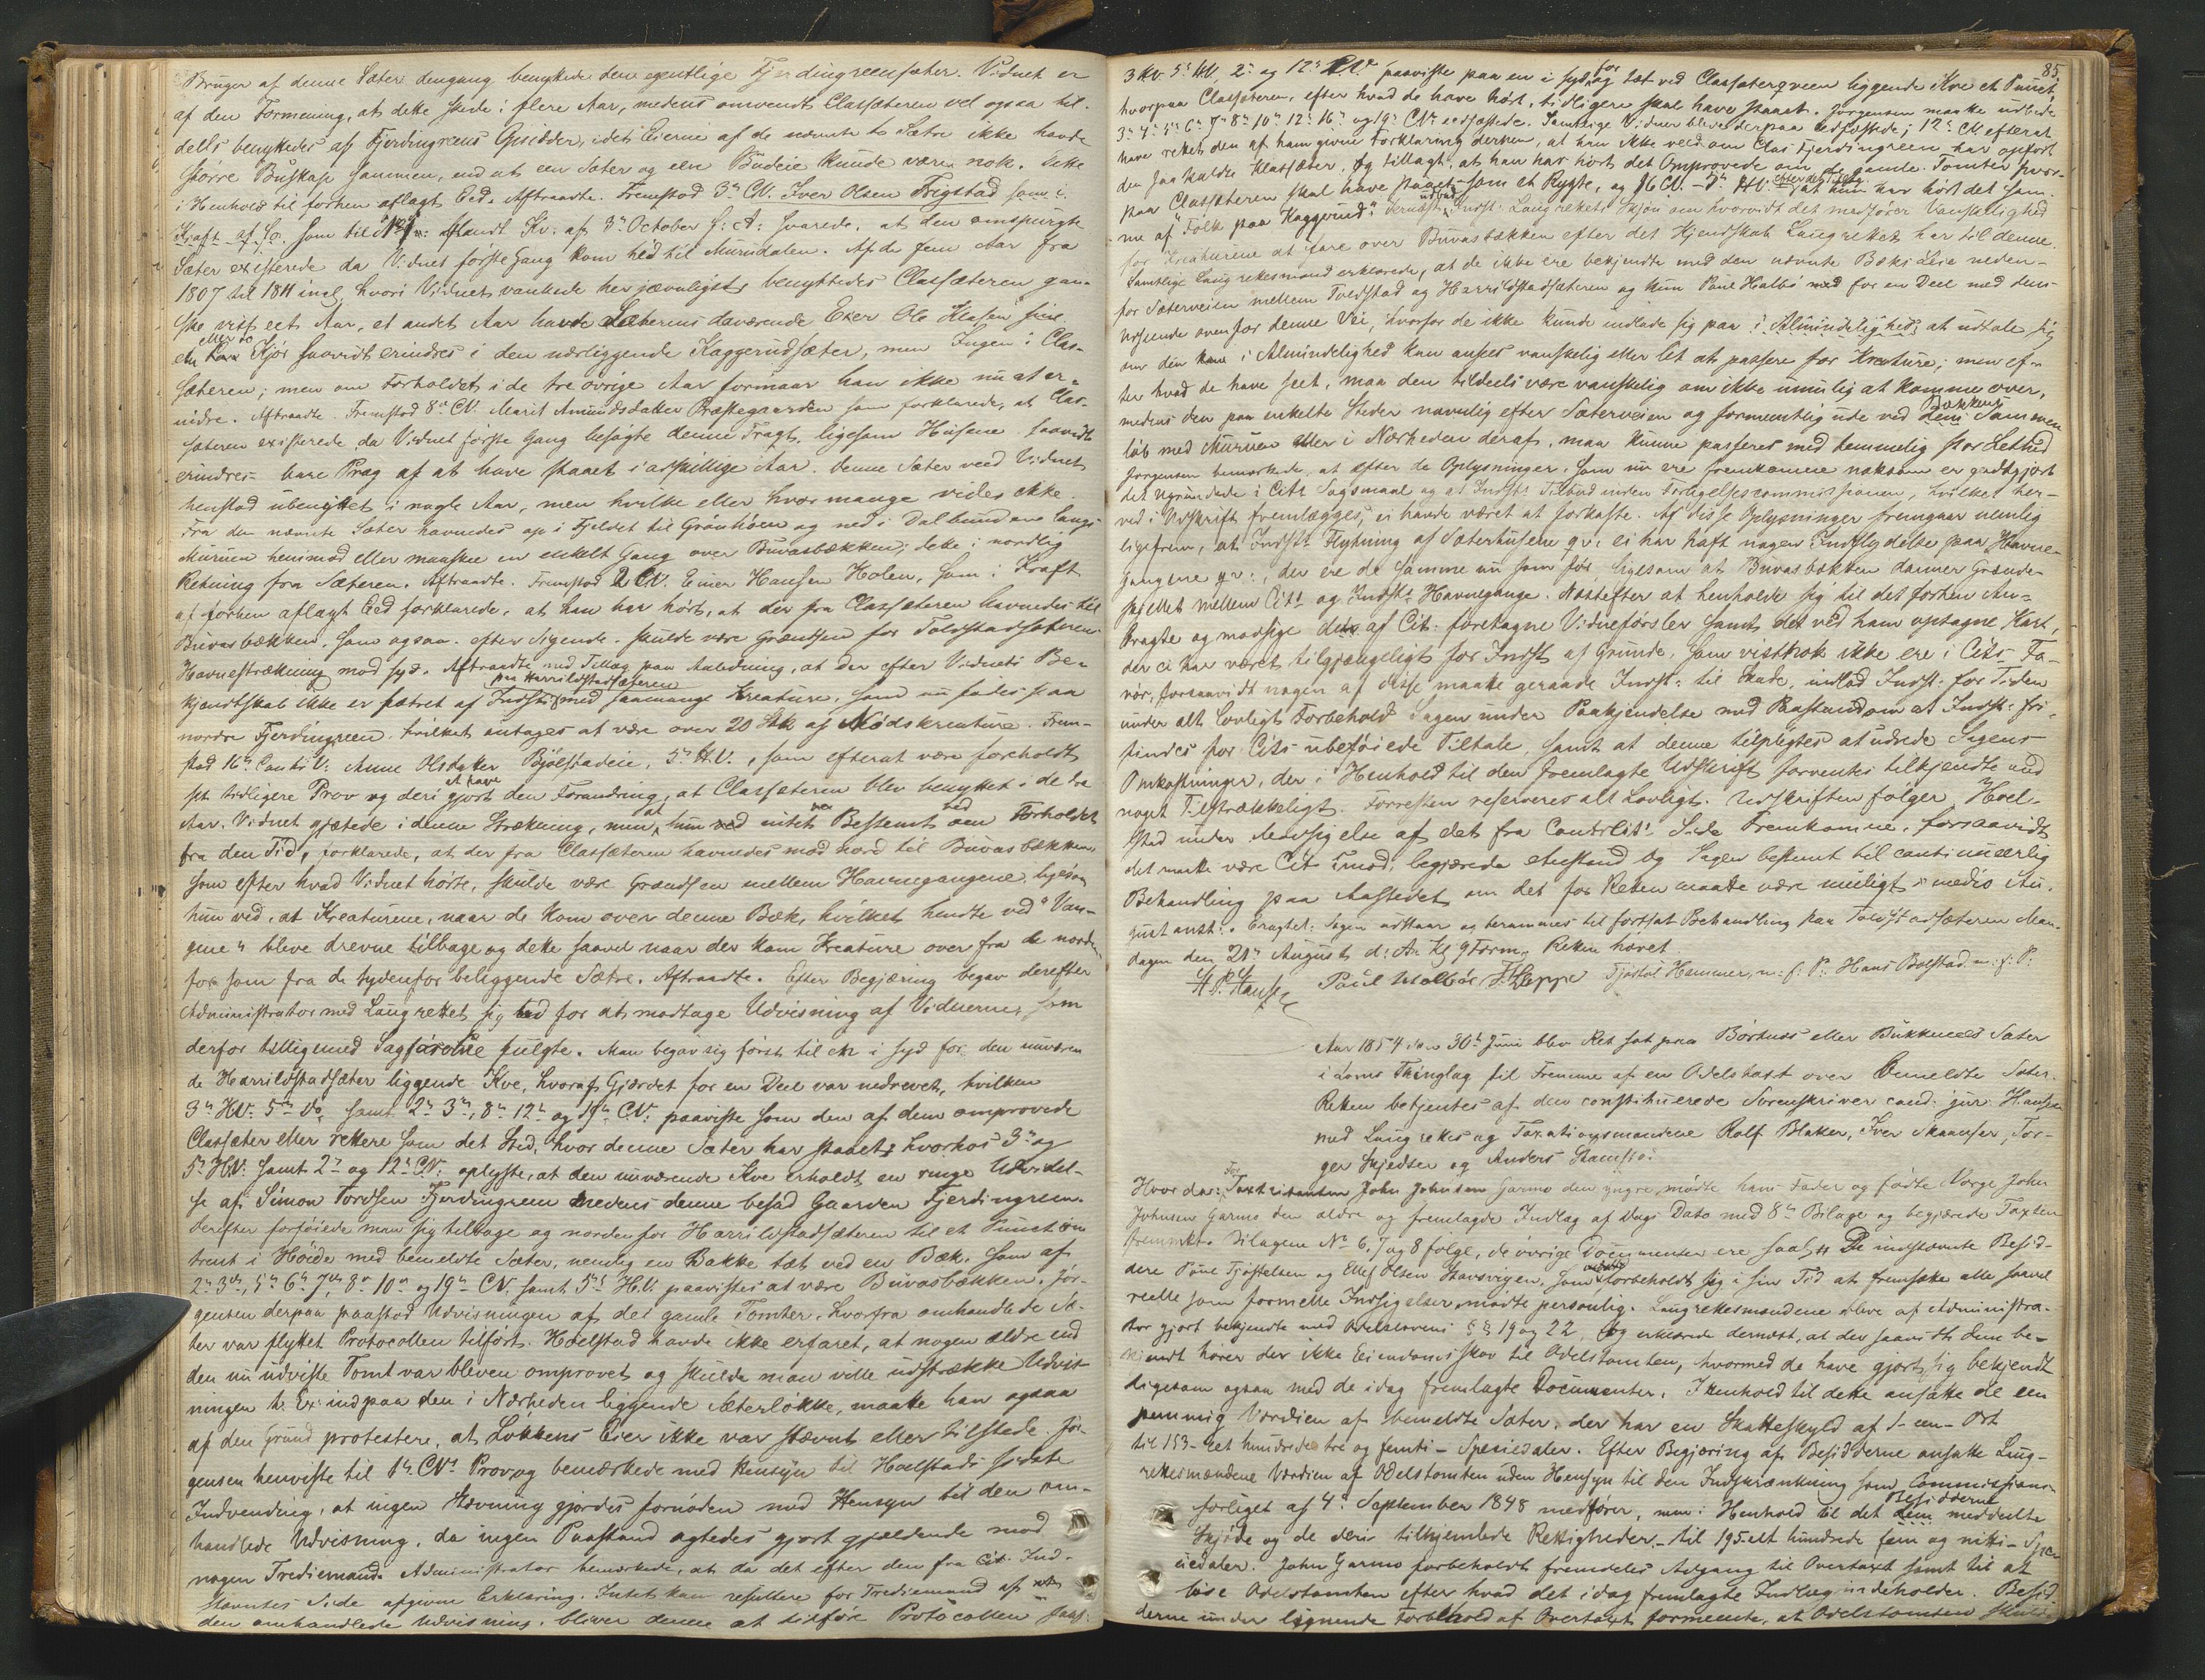 Bruger af denne Sæter dengang benyttede den egentlige Fjerdingreensæter. Vidnet er
af den Formening, at dette skede i flere Aar, medens omvendt Classæteren vel ogsaa til-
dels benyttedes af Fjerdingreens Opsidder, idet Eierne af de nævnte to Sætre ikke havde
større Buskap sammen, end at een Sæter og een Budeie kunde være nok. Dette
i Henhold til forhen aflagt Eed. Aftraadte. Fremstod 3die CV. Iver Olsen Frigstad som i
Kraft af Do. som til Andt Kv: af 3die October f: A: svarede, at den omspurgte
Sæter existerede da Vidnet første Gang kom hid til Murudalen. Af de fem Aar fra
1807 til 1811 incl. hvori Vidnet vankede her jævnligst, benyttedes Classæteren gan-
ske vist eet Aar, et andet Aar havde Sæterens daværende Eier Ole Klasen sine
en eller to Kjør saavidt erindres i den nærliggende Kaggerudsæter, men Ingen i Clas-
sæteren; men om Forholdet i de tre øvrige Aar formaar han ikke nu at er-
indre. Aftraadte. Fremstod 8de CV. Marit Amundsdatter Præstegaarden som forklarede, at Clas-
sæteren existerede da Vidnet første Gang besøgte denne Tragt, ligesom Husene saavidt
erindres bare Præg af at have staaet i adskillige Aar. Denne Sæter veed Vidnet
henstod ubenyttet i nogle Aar, men hvilke eller hvor mange vides ikke.
Fra den nævnte Sæter havnedes op i Fjeldet til Grønhøen og ned i Dalbunden langs
Muruen henimod eller maaskee en enkelt Gang over Buvasbækken; dette i nordlig
Retning fra Sæteren. Aftraadte. Fremstod 2 CV. Einer Hansen Holen, som i Kraft
af forhen aflagt Eed forklarede, at han har hørt, at der fra Classæteren havnedes til
Buvasbækken, som ogsaa efter Sigende skulde være Grændsen for Toldstadsæterens
Havnestrækning mod syd. Aftraadte med Tillæg paa Anledning, at der efter Vidnets Be-
kjendtskab ikke er sætret af Indst: paa Harrildstadsæteren med saamange Kreature, som nu fødes paa
nordre Fjerdingreen hvilket antages at være over 20 Stk af Nødskreature. Frem-
stod 16de Contra V: Anne Olsdatter Bjølstadeie, 5te H.V., som efterat være foreholdt
sit tidligere Prov og deri at have gjort den Forandring, at Classæteren blev benyttet i de tre
Aar Vidnet gjætede i denne Strækning, men at hun ved intet Bestemt om Forholdet
fra den Tid, forklarede, at der fra Classæteren havnedes mod nord til Buvasbækken
som efter hvad Vidnet hørte, skulde være Grændsen mellem Havnegangene, ligesom
hun ved, at Kreaturene, naar de kom over denne Bæk, hvilket hendte ved "Van-
gene" bleve drevne tilbage og dette saavel naar der kom Kreature over fra de norden-
for som fra de sydenfor beliggende Sætre. Aftraadte. Efter Begjæring begav derefter
Administrator med Laugrettet sig ud for at modtage Udvisning af Vidnerne, som
derfor tilligemed Sagførerne fulgte. Man begav sig først til en i syd for den nuværen-
de Harrildstadsæter liggende Kve, hvoraf Gjærdet for en Deel var nedrevet, hvilken
3die HV. 5te Do, samt 2de 3die, 8de 12te og 19de CV. paaviste som den af dem omprovede
Classæter eller rettere som det Sted, hvor denne Sæter har staaet; hvorhos 3die og
5te HV. samt 2de og 12te CV. oplyste, at den nuværende Kve erholdt en ringe Udvidel-
se af Simon Tordsen Fjerdingreen medens denne besad Gaarden Fjerdingreen.
Derefter forføiede man sig tilbage og nordenfor Harrildstadsæteren til et Punct om-
trent i Høide med bemeldte Sæter, nemlig en Bakke tæt ved en Bæk, som af
2de 3die, 5te 6te 7de, 8de 10de og 19de CV. samt 5te H.V. paavistes at være Buvasbækken. Jør-
gensen derpaa paastod Udvisningen af det gamle Tomter, hvorfra omhandlede Sæ-
ter var flyttet Protocollen tilført. Hoelstad havde ikke erfaret, at nogen ældre end
den nu udviste Tomt var bleven omprovet og skulde man ville udstrække Udvis-
ningen t. Ex: ind paa den i Nærheden liggende Sæterløkke, maatte han ogsaa
af den Grund protestere, at Løkkens Eier ikke var stævnt eller tilstede. Jør-
gensen henviste til 1ste CVs Prov og bemærkede med Hensyn til Hoelstads sidste
Indvending, at ingen Stævning gjordes fornøden med Hensyn til den om-
handlede Udvisning, da ingen Paastand agtedes gjort gjældende mod
nogen Trediemand. Administrator bemærkede, at da det efter den fra Cit. Ind-
stævntes Side afgivne Erklæring Intet kan resultere for Trediemand af
den omhandlede Udvisning, bliver denne at tilføre Protocollen saal:
85.
3 HV. 5te HV, 2de og 12te C.V. paaviste paa en i syd for og tæt ved Classætergreen liggende Kve et Punct,
hvorpaa Classæteren, efter hvad de have hørt, tidligere skal have staaet. Jørgensen maatte udbede
3die 4de 5te 6te 7de 8de 10de 12te 16de og 19de CVr edfæstede. Samtlige Vidner bleve derpaa edfæstede; 12te CV efterat
have rettet den af ham givne Forklaring derhen, at han ikke veed om Clas Fjerdingreen har opført
den saakaldte Klassæter, og tillagt, at han har hørt det Omprovede om de gamle Tomter hvor-
paa Classæteren skal have staaet som et Rygte, og 16 CV. - 5te HV. efter det tillagt, at hun har hørt det sam-
me af "Folk paa Kaggerud". udbad Indst: Laugrettets Skjøn om hvorvidt det medfører Vanskelighed
for Kreaturene at fare over Buvasbækken efter det Kjendskab Laugrettet har til denne.
Samtlige Laugrettesmænd erklærede, at de ikke ere bekjendte med den nævnte Bæks Leie neden-
for Sæterveien mellem Toldstad og Harrildstadsæteren og kun Paul Halbø med for en Deel med dens
Udseende ovenfor denne Vei, hvorfor de ikke kunde indlade sig paa i Almindelighed, at udtale sig
om den i Almindelighed kan ansees vanskelig eller let at passere for Kreature; men ef-
ter hvad de have seet, maa den tildeels være vanskelig om ikke umulig at komme over,
medens den paa enkelte Steder navnlig efter Sæterveien og formentlig ude ved Bækkens Sammen-
løb med Muruen eller i Nærheden deraf, maa kunne passeres med temmelig stor Lethed.
Jørgensen bemærkede, at efter de Oplysninger, som nu ere fremkomne noksom er godtgjort
det Ugrundede i Cits Sagsmaal og at Indsts Tilbud inden Forligelsescommissionen, hvilket her-
ved i Udskrift fremlægges, ei havde været at forkaste. Af disse Oplysninger fremgaar nemlig
ligefrem, at Indsts Flytning af Sæterhusene qv: ei har haft nogen Indflydelse paa Havne-
gangene qv:, der ere de samme nu som før, ligesom at Buvasbækken danner Grændse-
skillet mellem Cits og Indsts Havnegange. Næstefter at henholde sig til det forhen An-
bragte og modsige de af Cit: foretagne Vidneførsler samt det ved ham optagne Kart,
der ei har været tilgjængeligt for Indst af Grunde, som vistnok ikke ere i Cits Fa-
vør, forsaavidt nogen af disse maatte geraade Indst: til Skade, indlod Indst: for Tiden
under alt lovligt Forbehold Sagen under Paakjendelse med Paastand om at Indst: fri-
findes for Cits ubeføiede Tiltale, samt at denne tilpligtes at udrede Sagens
Omkostninger, der i Henhold til den fremlagte Udskrift forventes tilkjendte med
noget Tilstrækkeligt. Forresten reserveres alt Lovligt. Udskriften følger. Hoel-
stad under Modsigelse af det fra Contracits Side Fremkomne, forsaavidt
det maatte være Cit: imod, begjærede Anstand og Sagen bestemt til continuerlig
Behandling paa Aastedet om det for Retten maatte være muligt i medio Au-
gust anst:. Eragtet: Sagen udstaar og berammes til fortsat Behandling paa Toldstadsæteren Man-
dagen den 21de August d: A: Kl 9 Form. Retten hævet.
H. P. Hansen Paul Halbøe F. Kleppe Tjøstol Hammer, m: f: P: Hans Bolstad m: f: P:
Aar 1854 den 30te Juni blev Ret sat paa Børtnes eller Bukkenæs Sæter
i Loms Thinglag til Fremme af en Odelstaxt over bemeldte Sæter.
Retten betjentes af den constituerede Sorenskriver cand. jur: Hansen
med Laugrettes og Taxationsmændene Rolf Blaker, Iver Skaanser, Tor-
ger Skjedser og Anders Stamsto.
Hvor da: For Taxtcitanten John Johnsen Garmo den yngre mødte hans Fader og fødte Værge John
Johnsen Garmo den ældre og fremlagde Indlæg af Dags Dato med 8te Bilage og begjærede Taxten
fremmet. Bilagene No 6, 7 og 8 følge, de øvrige Documenter ere saal: De indstævnte Besid-
dere Paul Tjøstelsen og Ellef Olsen Stavsvigen, som forbeholdt sig i sin Tid at fremsætte alle saavel
reelle som formelle Indsigelser, mødte personlig. Laugrettesmændene bleve af Administra-
tor gjort bekjendte med Odelslovens §§ 19 og 22, og erklærede dernæst, at der saavidt dem be-
kjendt hører der ikke Eiendomsskov til Odelstomten, hvormed de have gjort sig bekjendt
ligesom ogsaa med de idag fremlagte Documenter. I Henhold til dette ansatte de een
stemmig Værdien af bemeldte Sæter, der har en Skatteskyld af 1 - een - Ort
til 153 - eet hundrede tre og femti - Speciedaler. Efter Begjæring af Besidderne ansatte Laug-
rettesmændene Værdien af Odelstomten uden Hensyn til den Indskrænkning som Commissions-
forliget af 4de September 1848 medfører, men i Henhold til det Besidderne meddeelte
Skjøde og de deri tilhjemlede Rettigheder - til 195 - eet hundrede fem og nitti - Spe-
ciedaler. John Garmo forbeholdt fremdeles Adgang til Overtaxt samt til at
løse Odelstomten efter hvad det idag fremlagte Indlæg indeholder. Besid-
derne under lignende Forbehold af Overtaxt formeente, at Odelstomten skulde